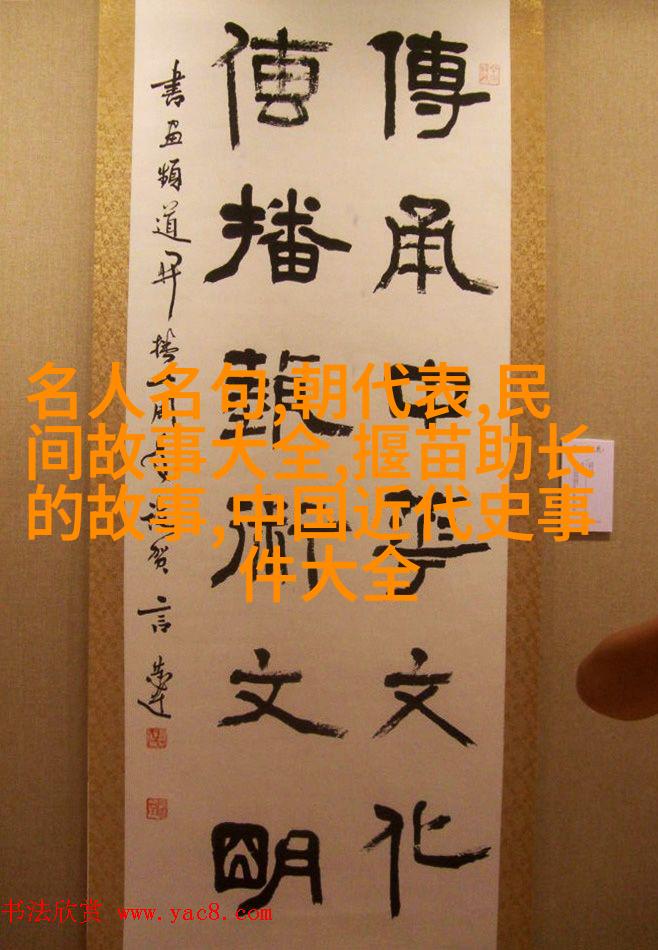 傳承中華文化
傳播藝術文明
書画頻道开播周年賀 言恭達
名人名句,朝代表,民
间故事大全,揠苗助长
的故事,中国近代史事
件大全
书法欣赏 www.yac8.com